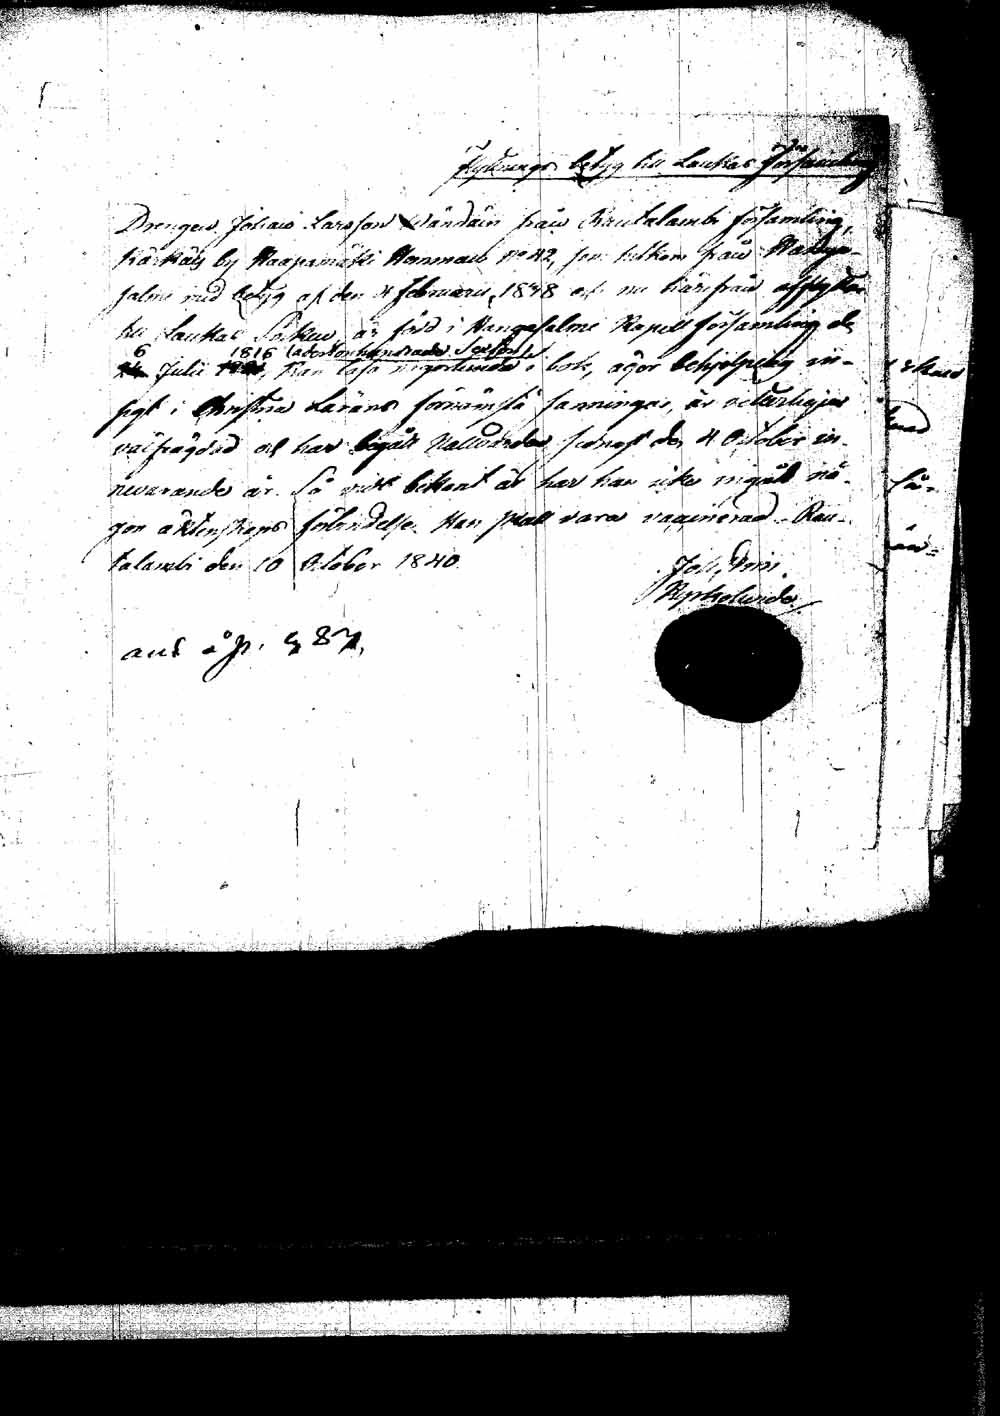 Flyttnings betyg till Laukas Församling
Drengen Johan Larsson från Rautalambi församling,
Kärkäis by Haapamäki Hemman No 42, som hitkom från Hanga-
salmi med betyg af den 4 Februarii 1838 och nu härifrån afflyttar
till Laukas Socken är född i Hangasalmi Kapell församling de
6 1816 (adertonhundrade Sexton)
Julii kan läsa någorlunda i bok, äger behjelplig in-
sigt i Christna Lärans förnämsta sanningar, är veterligen
välfrägdad och har begått Nattvarden senast den 4 October in-
nevarande år. Så vidt bekant är har han icke ingått nå-
gon äktenskaps förbindelse. Han skall vara vaccinerad. Rau-
talambi den 10 October 1840.
Kyrkoherde.